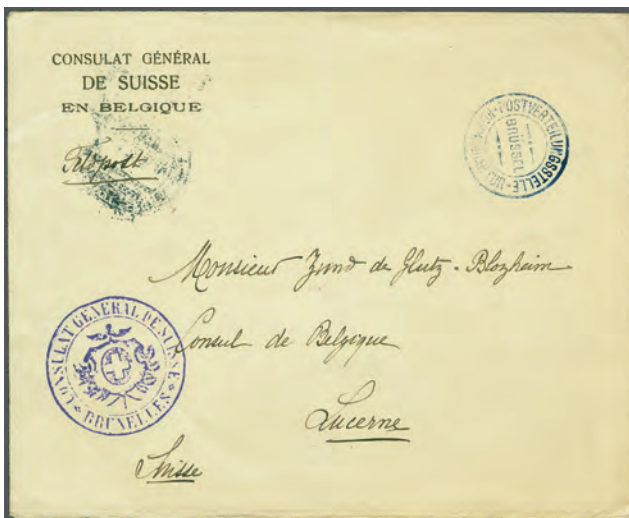 CONSULAT GÉNÉRAL
DE SUISSE
EN BELGIQUE
Feldpost
POSTVERTEILUNGSSTELLE
BRÜSSEL
Monsieur Zünd de Glutz-Blozheim
Consul de Belgique
Lucerne
Suisse
CONSULAT GÉNÉRAL DE SUISSE
* BRUXELLES *